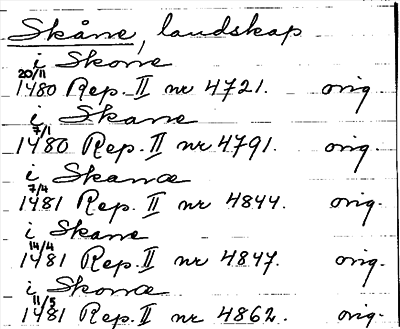 Skåne, landskap
i Skone
20/11 1480 Rep. II nr 4721. orig.
i Skane
7/1 1480 Rep. II nr 4791. orig.
i Skanæ
7/4 1481 Rep. II nr 4844. orig.
i Skane
14/4 1481 Rep. II nr 4847. orig.
i Skonæ
11/5 1481 Rep. II nr 4862. orig.